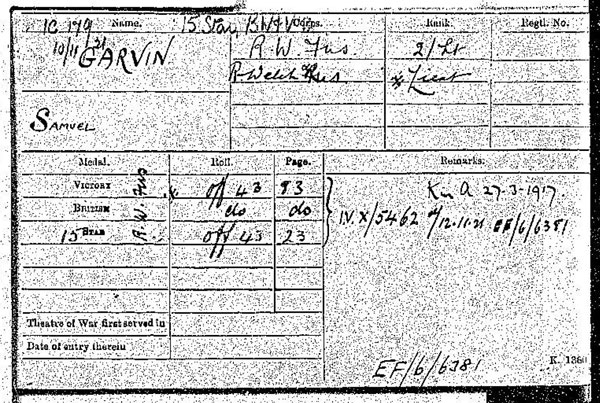 IC 179 Name. 15 Star, B.W & V Corps. Rank. Regtl. No.
10/11/21 GARVIN R. W. Fus 2/Lt
R Welch Fus x Lieut
SAMUEL
Medal. Roll. Page. Remarks.
VICTORY x off 43 93 K in A 27-3-1917
BRITISH R. W. Fus do do IV. X/5462 d/12.11.21 EF/6/6381
15 STAR off 43 23
Theatre of War first served in
Date of entry therein
EF/6/6381 K. 1380